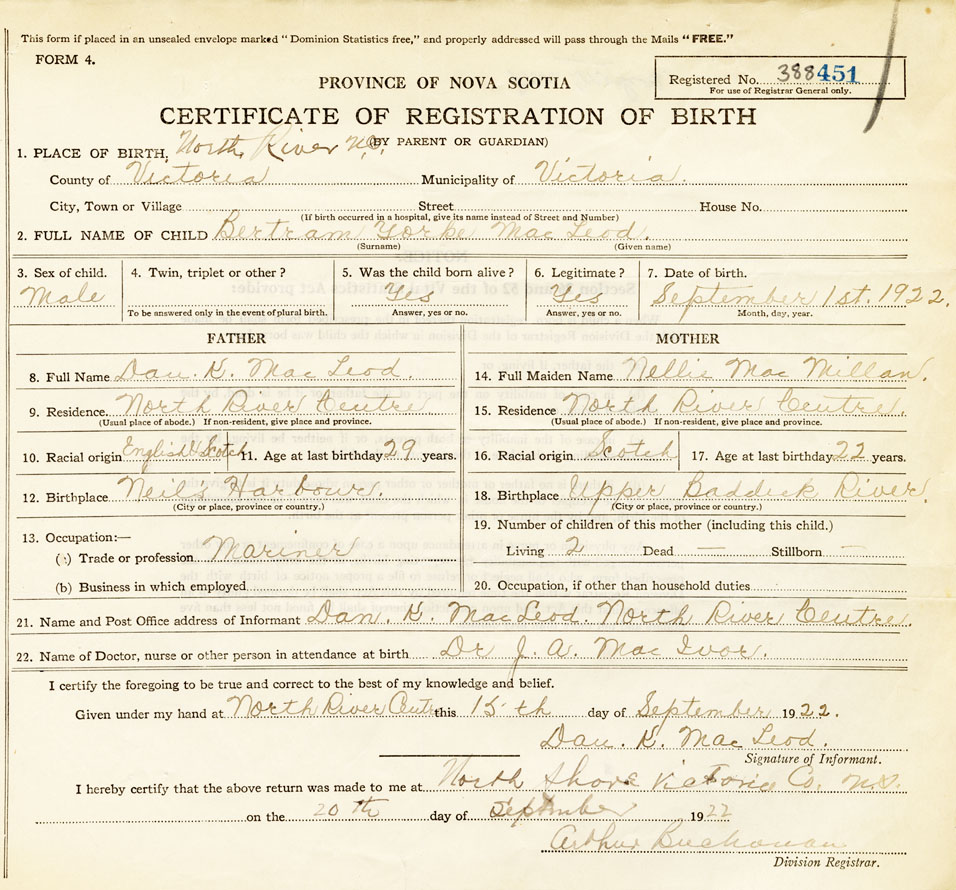 This form if placed in an unsealed envelope marked "Dominion Statistics free," and properly addressed will pass through the Mails "FREE."
FORM 4.
Registered No. 388451
For use of Registrar General only.
PROVINCE OF NOVA SCOTIA
CERTIFICATE OF REGISTRATION OF BIRTH
(BY PARENT OR GUARDIAN)
1. PLACE OF BIRTH, North River
County of Victoria Municipality of Victoria.
City, Town or Village Street House No.
(If birth occurred in a hospital, give its name instead of Street and Number)
2. FULL NAME OF CHILD Bertram Yorke Mac Leod.
(Surname) (Given name)
3. Sex of child. 4. Twin, triplet or other? 5. Was the child born alive? 6. Legitimate? 7. Date of birth.
Male Yes Yes September 1st. 1922.
To be answered only in the event of plural birth. Answer, yes or no. Answer, yes or no. Month, day, year.
FATHER MOTHER
8. Full Name Dan. K. Mac Leod. 14. Full Maiden Name Nellie Mac Millan.
9. Residence. North River Centre 15. Residence North River Centre.
(Usual place of abode.) If non-resident, give place and province. (Usual place of abode.) If non-resident, give place and province.
10. Racial origin English & Scotch 11. Age at last birthday 29 years. 16. Racial origin Scotch 17. Age at last birthday 22 years.
12. Birthplace Neil's Harbour. 18. Birthplace Upper Baddeck River.
(City or place, province or country.) (City or place, province or country.)
13. Occupation:— 19. Number of children of this mother (including this child.)
(a) Trade or profession Mariner Living 2 Dead — Stillborn —
(b) Business in which employed 20. Occupation, if other than household duties
21. Name and Post Office address of Informant Dan. K. MacLeod. North River Centre.
22. Name of Doctor, nurse or other person in attendance at birth Dr J. A. Mac Ivor.
I certify the foregoing to be true and correct to the best of my knowledge and belief.
Given under my hand at North River Centre this 15th day of September 1922.
Dan. K. Mac Leod.
Signature of Informant.
I hereby certify that the above return was made to me at North Shore Victoria Co. N.S.
on the 20th day of September 1922
Arthur Buchanan
Division Registrar.